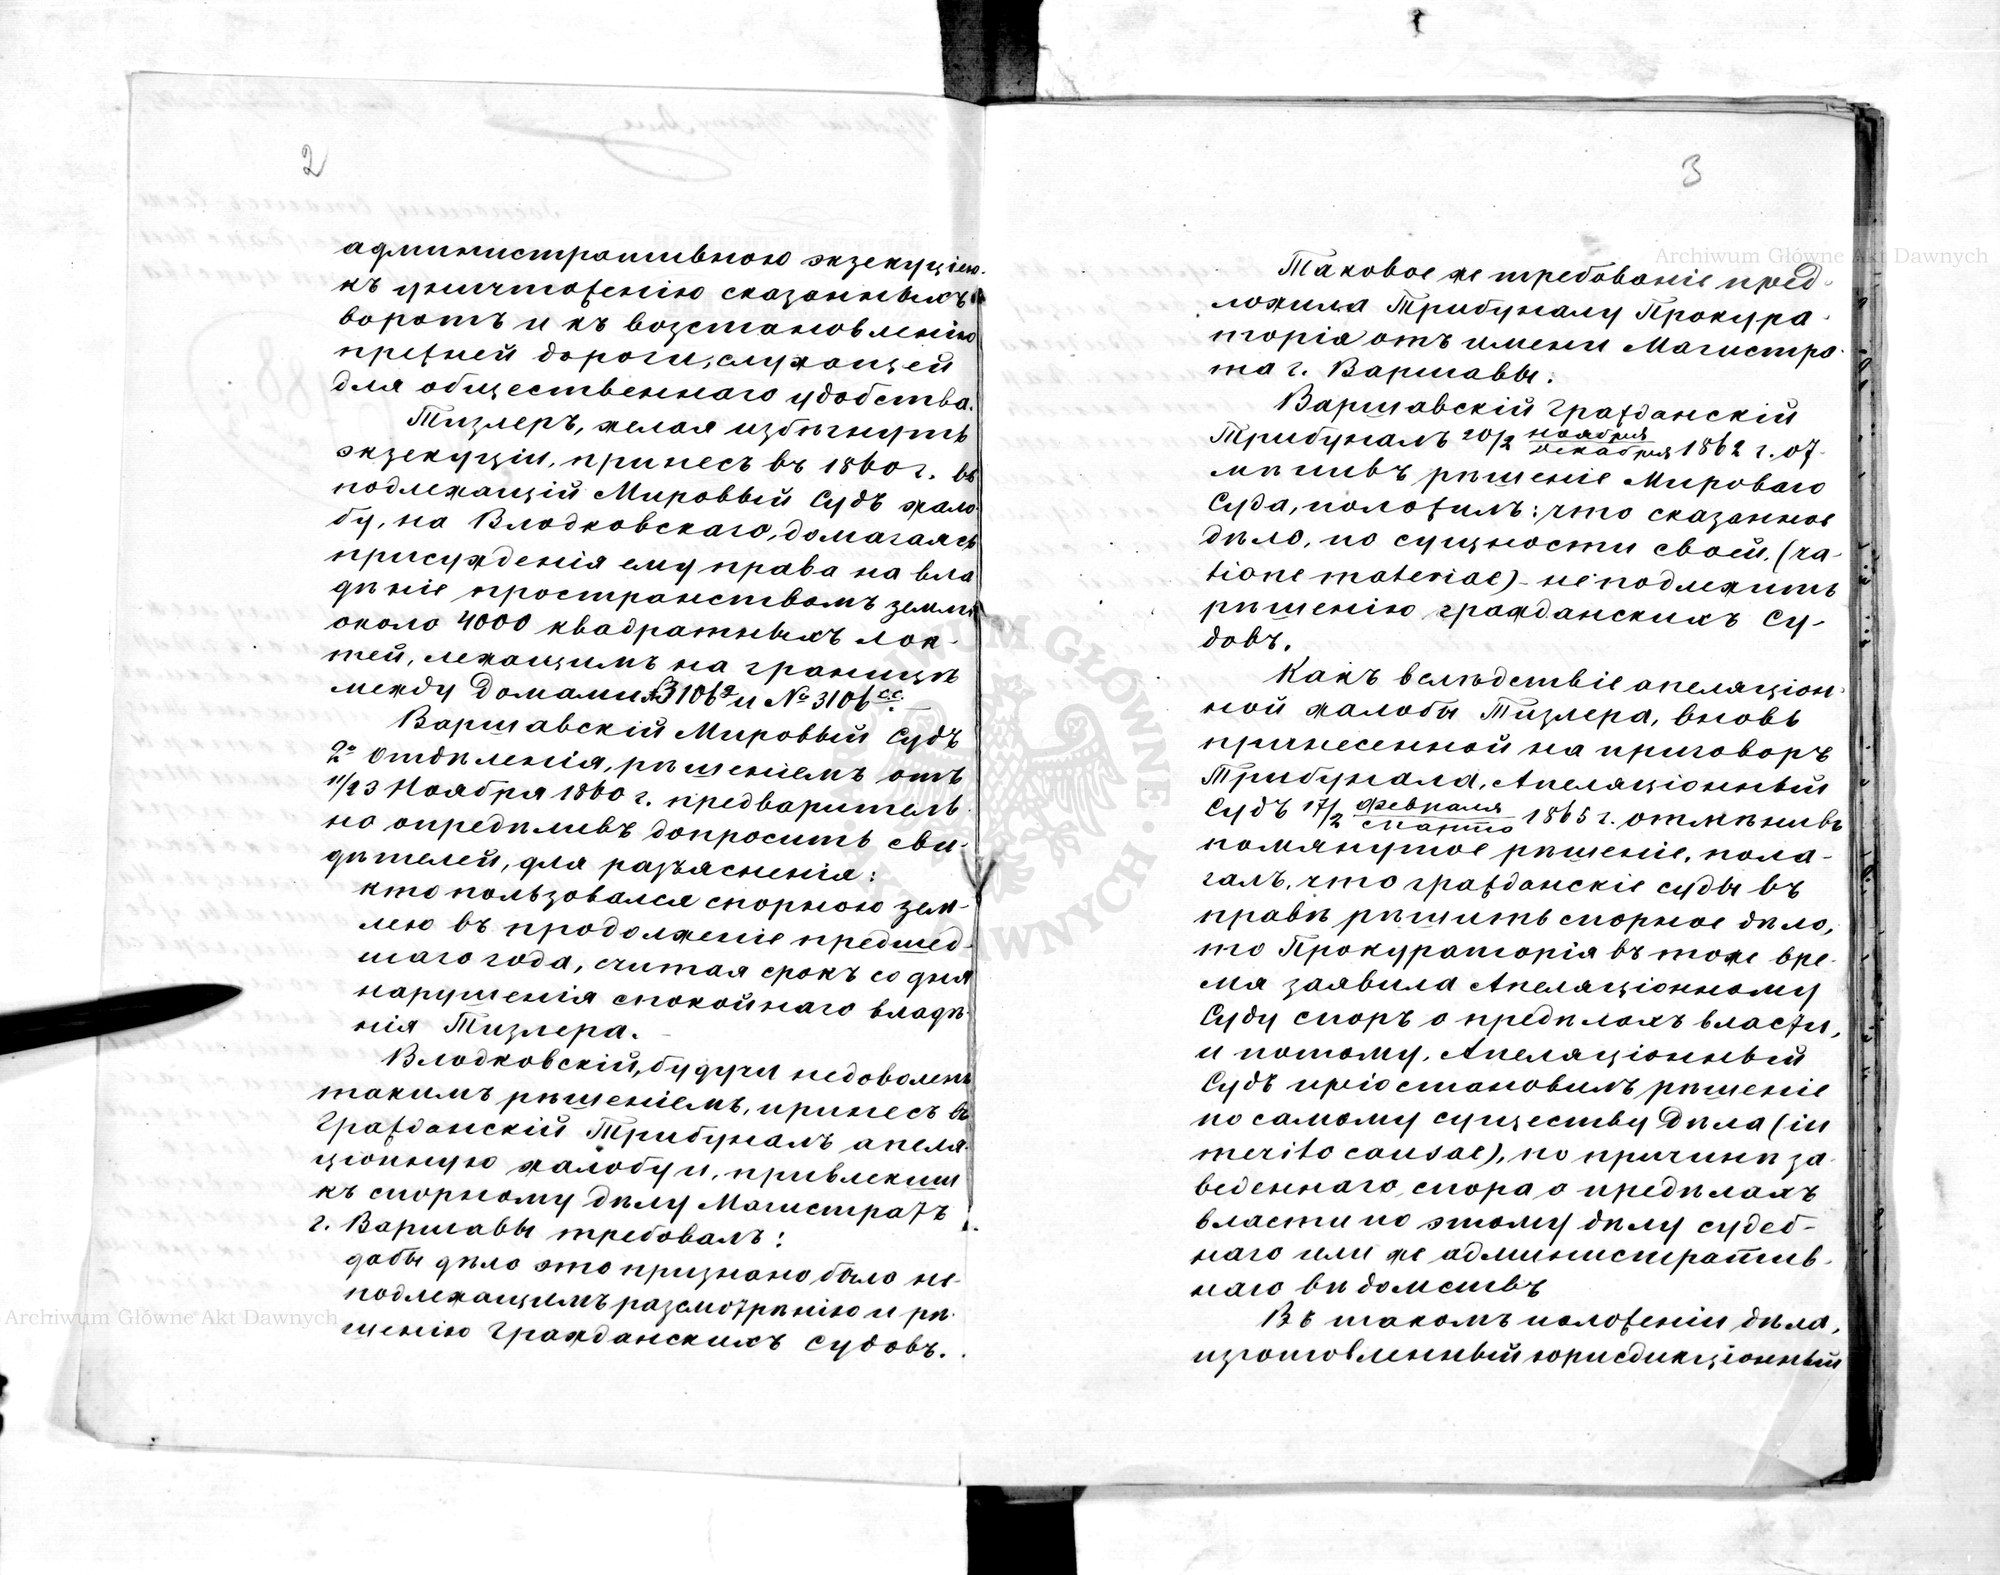 2
административною экзекуціею
къ уничтоженію сказанныхъ
воротъ и къ возстановленію
прежней дороги, служащей
для общественнаго удобства.
Тизлеръ, желая избѣгнуть
экзекуціи, принесъ въ 1860 г. въ
подлежащій Мировый Судъ жало-
бу, на Влодковскаго, домагаясь
присужденія ему права на вла
дѣніе пространствомъ земли
около 4000 квадратныхъ лок-
тей, лежащимъ на границѣ
между домами № 3106 и № 3106 cc.
Варшавскій Мировый Судъ
2о Отдѣленія, рѣшеніемъ отъ
11/23 Ноября 1860 г. предваритель
но опредѣливъ допросить сви-
дѣтелей, для разъясненія:
кто пользовался спорною зем-
лею въ продолженіе предшед-
шаго года, считая срокъ со дня
нарушенія спокойнаго владѣ-
нія Тизлера.
Влодковскій, будучи недоволенъ
такимъ рѣшеніемъ, принесъ въ
Гражданскій Трибуналъ апеля-
ціонную жалобу и, привлекши
къ спорному дѣлу Магистратъ
г. Варшавы требовалъ:
дабы дѣло это признано было не-
подлежащимъ разсмотрѣнію и рѣ-
шенію Гражданскихъ Судовъ.
3
Таковое же требованіе пред-
ложила Трибуналу Прокура-
торія отъ имени Магистра-
та г. Варшавы.
Варшавскій Гражданскій
Трибуналъ 20/2 ноября/декабря 1862 г. от-
мѣнивъ рѣшеніе Мироваго
Суда, положилъ: что сказанное
дѣло, по сущности своей, (ra-
tione materiae) неподлежитъ
рѣшенію гражданскихъ Су-
довъ.
Какъ вслѣдствіе апеляціон-
ной жалобы Тизлера, вновь
принесенной на приговоръ
Трибунала, Апеляціонный
Судъ 17/2 Февраля/Марта 1865 г. отмѣнивъ
помянутое рѣшеніе, пола-
галъ, что гражданскіе суды въ
правѣ рѣшить спорное дѣло,
то Прокураторія въ тоже вре-
мя заявила Апеляціонному
Суду споръ о предѣлахъ власти,
и потому, Апеляціонный
Судъ пріостановилъ рѣшеніе
по самому существу дѣла (in
merito causae), по причинѣ за-
веденнаго спора о предѣлахъ
власти по этому дѣлу судеб-
наго или же административ-
наго вѣдомствъ
Въ такомъ положеніи дѣла,
изготовленный юрисдикціонный
Archiwum Główne Akt Dawnych
Archiwum Główne Akt Dawnych